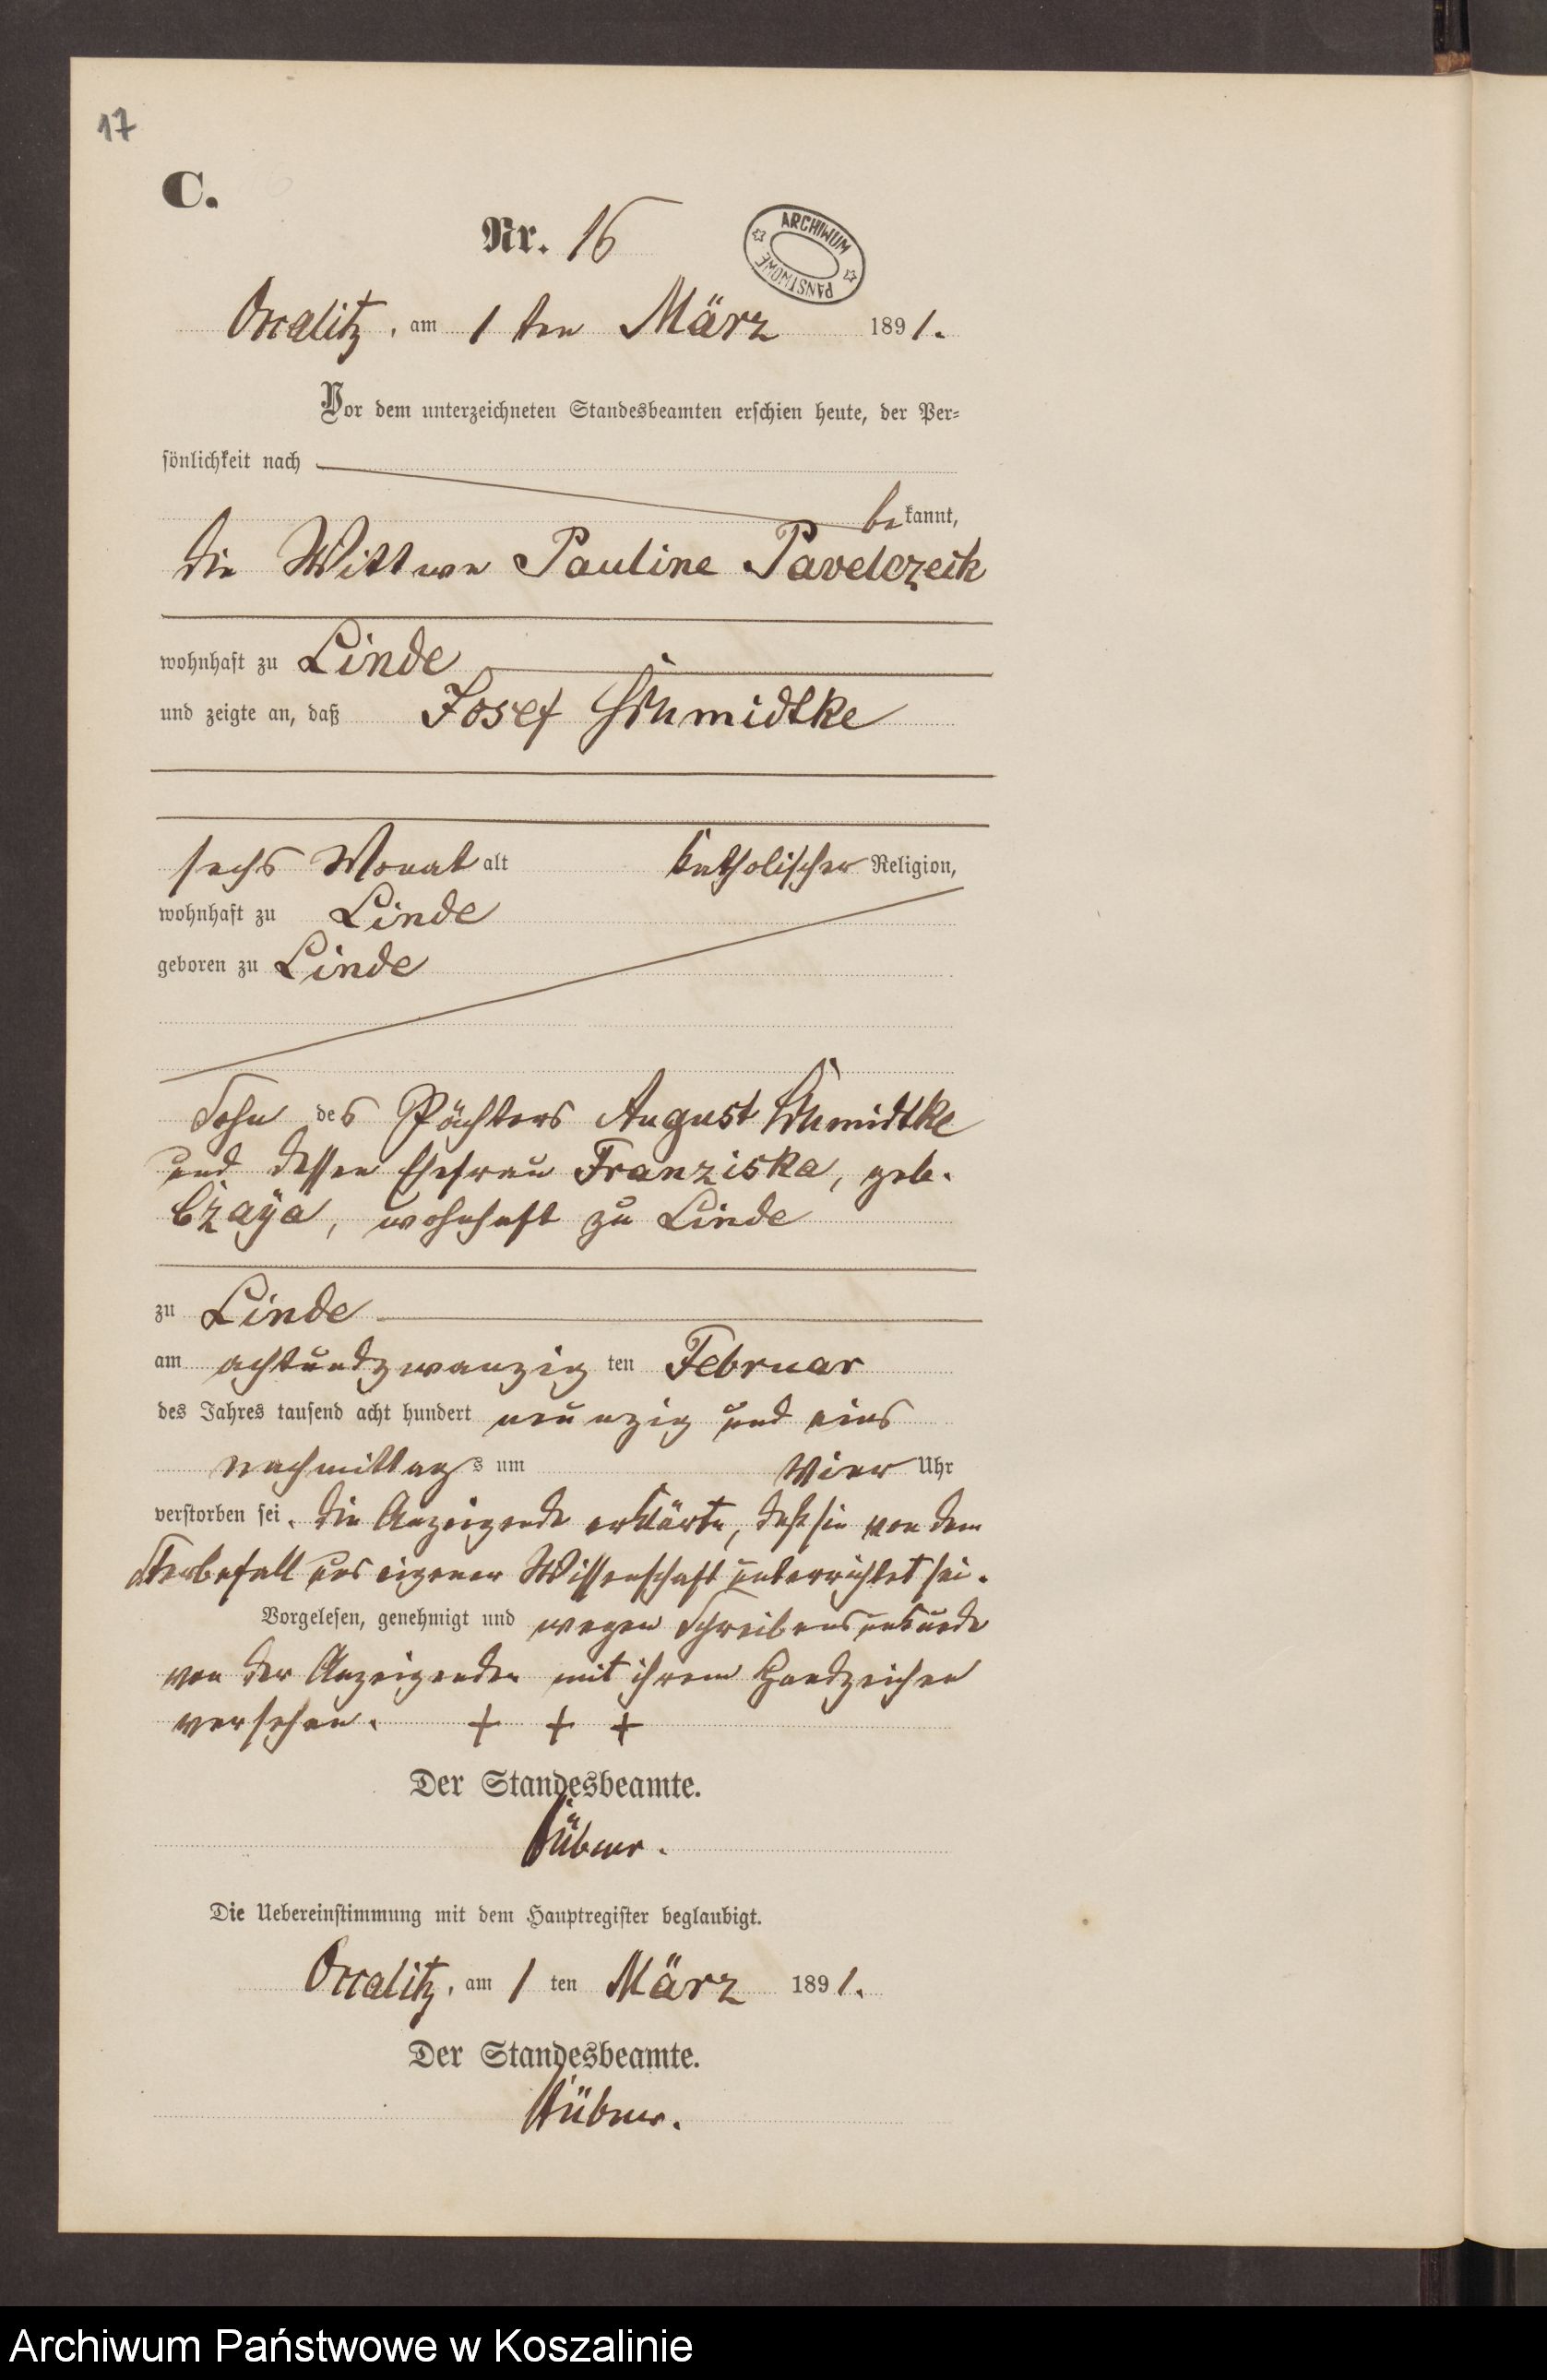 17
C.
Nr. 16
ARCHIWUM PAŃSTWOWE
Occalitz, am 1 ten März 1891.
Vor dem unterzeichneten Standesbeamten erschien heute, der Per-
sönlichkeit nach
bekannt,
die Wittwe Pauline Pavelczeik
wohnhaft zu Linde
und zeigte an, daß Josef Schmidtke
sechs Monat alt katholischer Religion,
wohnhaft zu Linde
geboren zu Linde
Sohn des Pächters August Schmidtke
und dessen Ehefrau Franziska, geb.
Czaya, wohnhaft zu Linde
zu Linde
am achtundzwanzig ten Februar
des Jahres tausend acht hundert neunzig und eins
Nachmittags um Vier Uhr
verstorben sei. Die Anzeigende erklärte, daß sie von dem
Sterbefall aus eigener Wissenschaft unterrichtet sei.
Vorgelesen, genehmigt und wegen Schreibensunkunde
von der Anzeigenden mit ihrem Handzeichen
versehen. + + +
Der Standesbeamte.
Die Uebereinstimmung mit dem Hauptregister beglaubigt.
Occalitz, am 1 ten März 1891.
Der Standesbeamte.
Archiwum Państwowe w Koszalinie